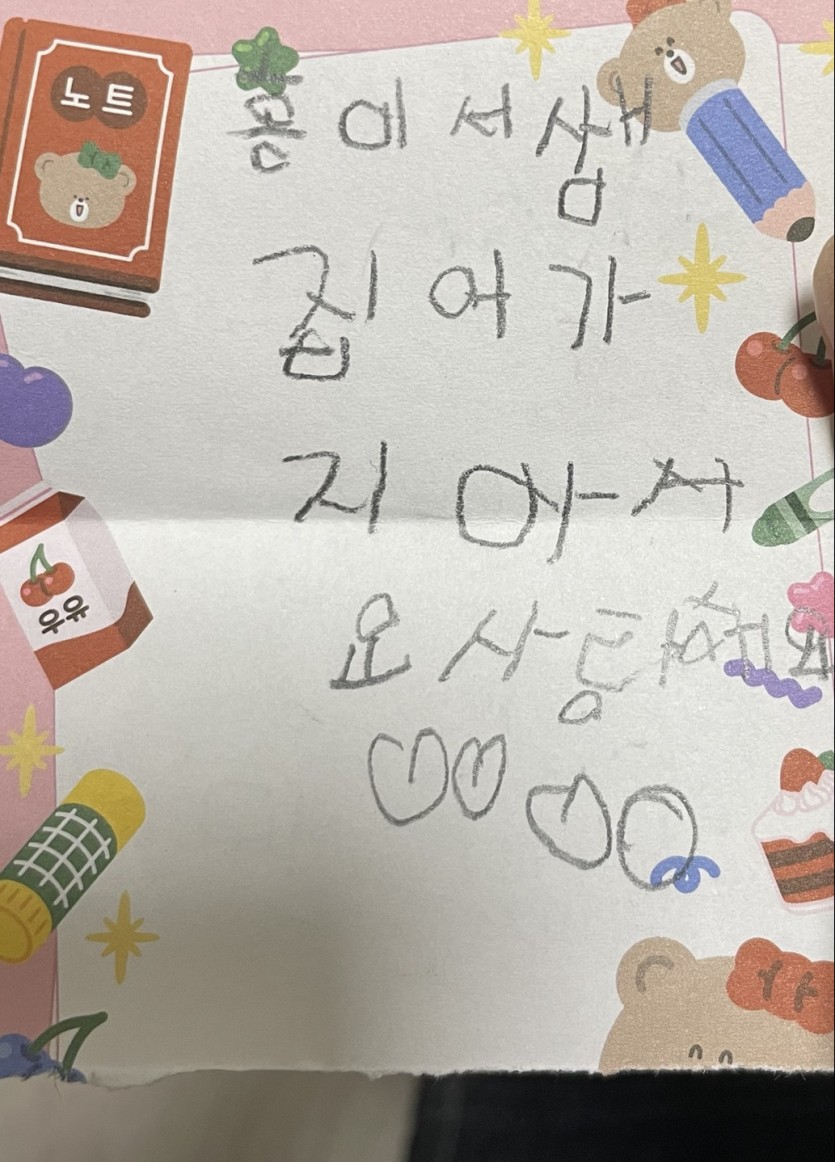 노트
홍이서샘
집어가
지아서
요사랑해요
우유